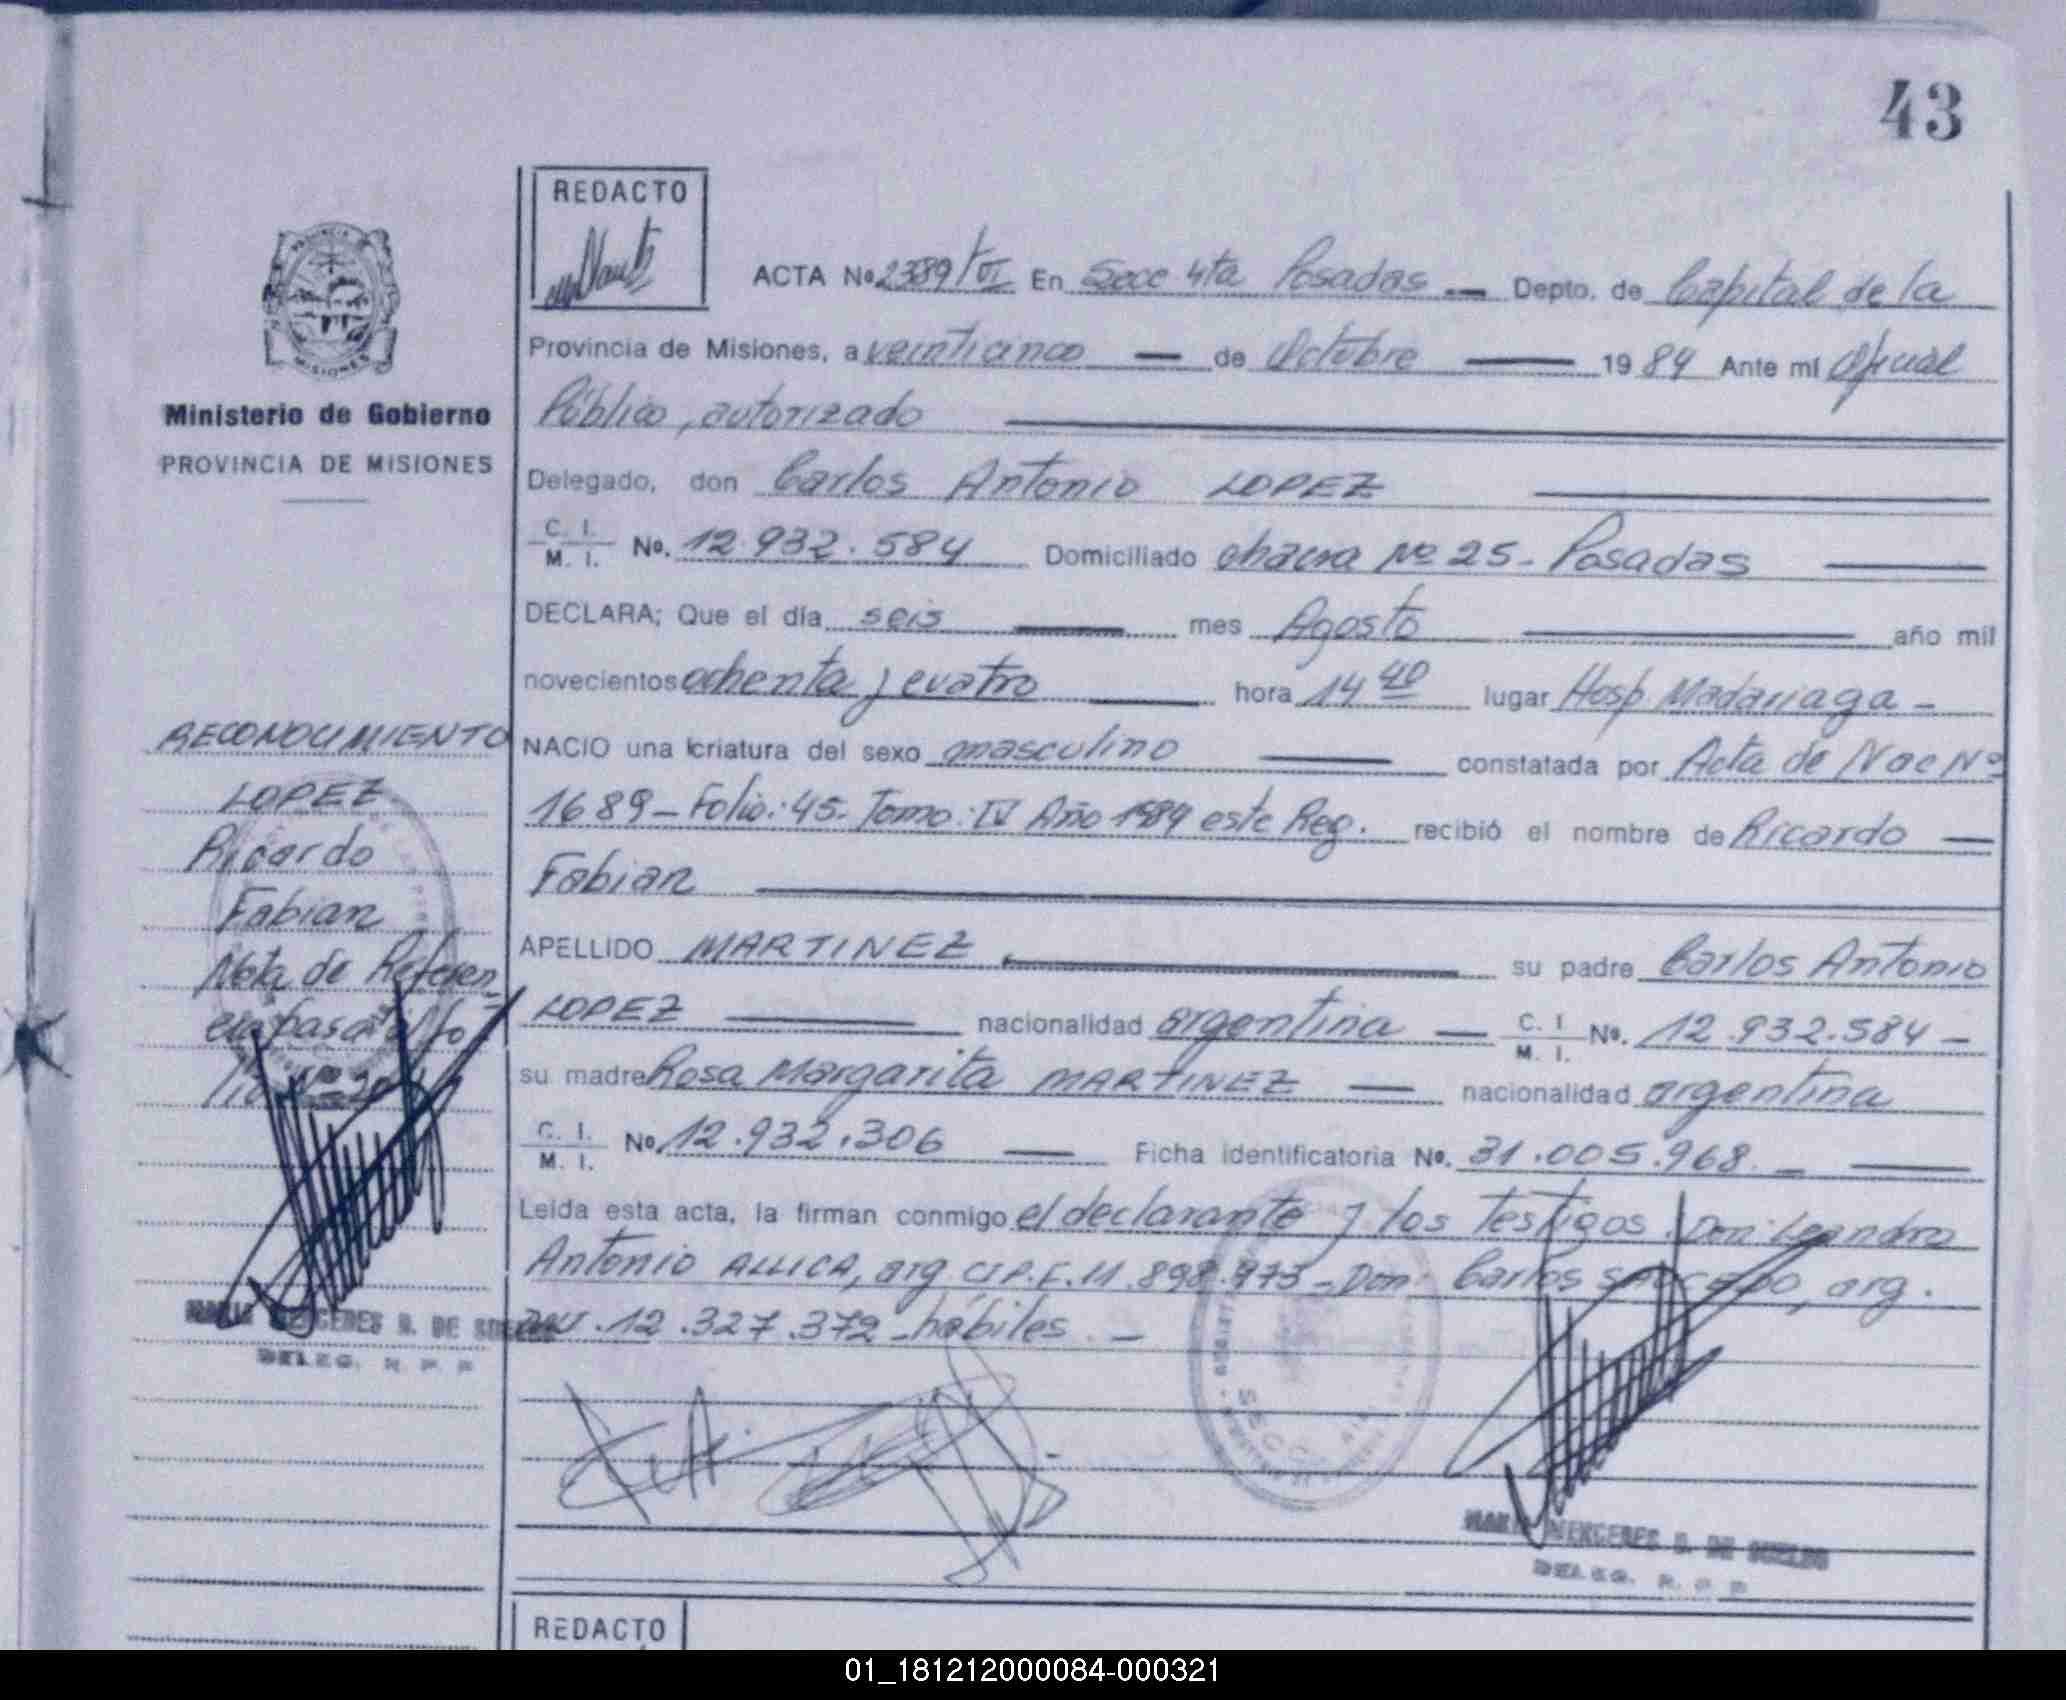 43
REDACTO
ACTA Nº 2389/VI En Secc 4ta Posadas Depto. de Capital de la
Provincia de Misiones, a veinticinco de Octubre 1984 Ante mí Oficial
Público, autorizado
Ministerio de Gobierno
PROVINCIA DE MISIONES
Delegado, don Carlos Antonio LOPEZ
C. I. M. I. Nº. 12.932.584 Domiciliado chacra Nº 25- Posadas
DECLARA; Que el día seis mes Agosto año mil
novecientos ochenta y cuatro hora 14 40 lugar Hosp. Madariaga -
RECONOCIMIENTO
LOPEZ
Ricardo
Fabian
Nota de Referen
cia pasa al fo
lio Nº
MARIA MERCEDES DE
DELEG. R. P. P
NACIO una criatura del sexo masculino constatada por Acta de Nac Nº
1689 - Folio: 45. Tomo: IV Año 1984 este Reg. recibió el nombre de Ricardo
Fabian
APELLIDO MARTINEZ su padre Carlos Antonio
LOPEZ nacionalidad argentina C. I. M. I. Nº. 12.932.584 -
su madre Rosa Margarita MARTINEZ nacionalidad argentina
C. I. M. I. Nº. 12.932.306 Ficha identificatoria Nº. 31.005.968. -
Leída esta acta, la firman conmigo el declarante y los testigos. Don: Leandro
Antonio arg 11.898.973 - Don: Carlos arg.
12.327.372 - hábiles. -
SECC
MARIA MERCEDES DE
DELEG. R. P. P
REDACTO
01_181212000084-000321